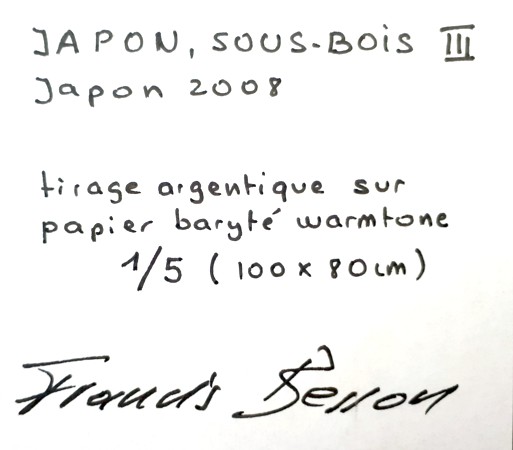 JAPON, SOUS-BOIS III
Japon 2008
tirage argentique sur
papier baryté warmtone
1/5 (100 x 80 cm)
Francis Besson